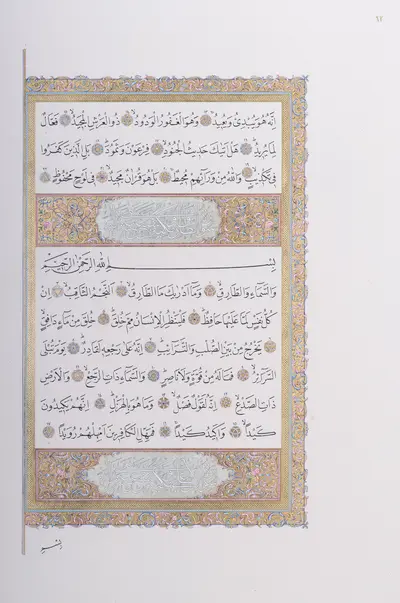 ١٢
إِنَّهُ هُوَ يُبْدِئُ وَيُعِيدُ وَهُوَ الْغَفُورُ الْوَدُودُ ذُو الْعَرْشِ الْمَجِيدُ فَعَّالٌ
لِمَا يُرِيدُ هَلْ أَتَيكَ حَدِيثُ الْجُنُودِ فِرْعَوْنَ وَثَمُودَ بَلِ الَّذِينَ كَفَرُوا
فِي تَكْذِيبٍ وَاللَّهُ مِنْ وَرَائِهِمْ مُحِيطٌ بَلْ هُوَ قُرْآنٌ مَجِيدٌ فِي لَوْحٍ مَحْفُوظٍ
بِسْمِ اللَّهِ الرَّحْمٰنِ الرَّحِيمِ
وَالسَّمَاءِ وَالطَّارِقِ وَمَا أَدْرٰيكَ مَا الطَّارِقُ النَّجْمُ الثَّاقِبُ إِنْ
كُلُّ نَفْسٍ لَمَّا عَلَيْهَا حَافِظٌ فَلْيَنْظُرِ الْإِنْسَانُ مِمَّ خُلِقَ خُلِقَ مِنْ مَاءٍ دَافِقٍ
يَخْرُجُ مِنْ بَيْنِ الصُّلْبِ وَالتَّرَائِبِ إِنَّهُ عَلٰى رَجْعِهِ لَقَادِرٌ يَوْمَ تُبْلَى
السَّرَائِرُ فَمَا لَهُ مِنْ قُوَّةٍ وَلَا نَاصِرٍ وَالسَّمَاءِ ذَاتِ الرَّجْعِ وَالْأَرْضِ
ذَاتِ الصَّدْعِ إِنَّهُ لَقَوْلٌ فَصْلٌ وَمَا هُوَ بِالْهَزْلِ إِنَّهُمْ يَكِيدُونَ
كَيْدًا وَأَكِيدُ كَيْدًا فَمَهِّلِ الْكَافِرِينَ أَمْهِلْهُمْ رُوَيْدًا
بِسْمِ